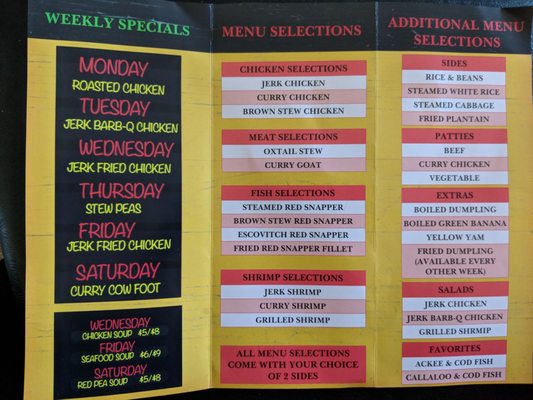 WEEKLY SPECIALS
MONDAY
ROASTED CHICKEN
TUESDAY
JERK BARB-Q CHICKEN
WEDNESDAY
JERK FRIED CHICKEN
THURSDAY
STEW PEAS
FRIDAY
JERK FRIED CHICKEN
SATURDAY
CURRY COW FOOT
WEDNESDAY
CHICKEN SOUP $5/$8
FRIDAY
SEAFOOD SOUP $6/$9
SATURDAY
RED PEA SOUP $5/$8
MENU SELECTIONS
CHICKEN SELECTIONS
JERK CHICKEN
CURRY CHICKEN
BROWN STEW CHICKEN
MEAT SELECTIONS
OXTAIL STEW
CURRY GOAT
FISH SELECTIONS
STEAMED RED SNAPPER
BROWN STEW RED SNAPPER
ESCOVITCH RED SNAPPER
FRIED RED SNAPPER FILLET
SHRIMP SELECTIONS
JERK SHRIMP
CURRY SHRIMP
GRILLED SHRIMP
ALL MENU SELECTIONS
COME WITH YOUR CHOICE
OF 2 SIDES
ADDITIONAL MENU
SELECTIONS
SIDES
RICE & BEANS
STEAMED WHITE RICE
STEAMED CABBAGE
FRIED PLANTAIN
PATTIES
BEEF
CURRY CHICKEN
VEGETABLE
EXTRAS
BOILED DUMPLING
BOILED GREEN BANANA
YELLOW YAM
FRIED DUMPLING
(AVAILABLE EVERY
OTHER WEEK)
SALADS
JERK CHICKEN
JERK BARB-Q CHICKEN
GRILLED SHRMIP
FAVORITES
ACKEE & COD FISH
CALLALOO & COD FISH